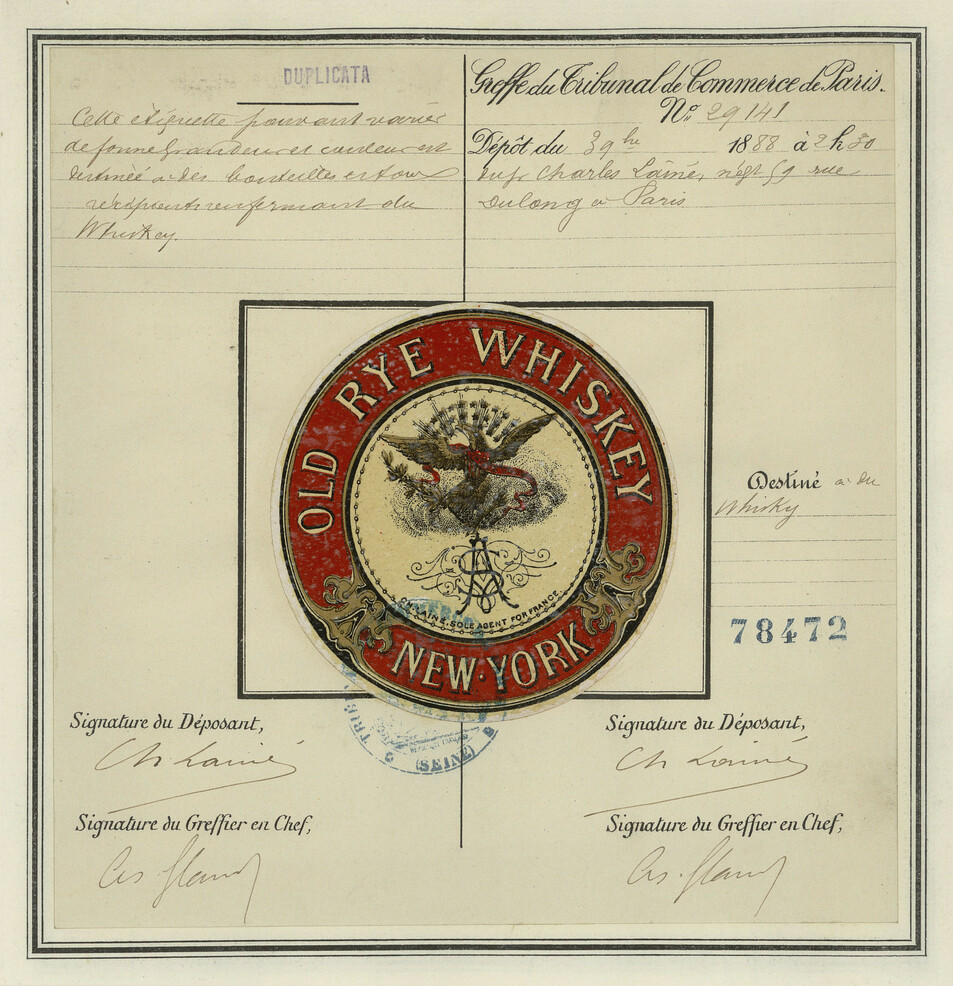 DUPLICATA
Cette étiquette pouvant varier
de forme grandeur et couleur est
destinée à des bouteilles et tous
récipients renfermant du
Whiskey.
Greffe du Tribunal de Commerce de Paris.
N.o 29141
Dépôt du 3 9bre 1888 à 2 h 30
Charles Lainé, négt 59 rue
Dulong à Paris
OLD RYE WHISKEY
CH. LAINE, SOLE AGENT FOR FRANCE
NEW·YORK
Destiné à du
Whisky
78472
(SEINE)
Signature du Déposant,
Ch Lainé
Signature du Déposant,
Ch Lainé
Signature du Greffier en Chef,
Signature du Greffier en Chef,